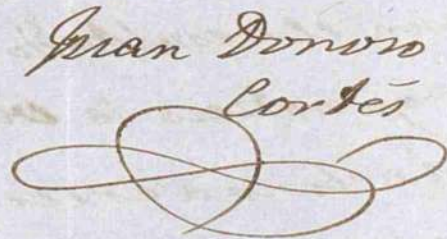 Juan Donoso
Cortés